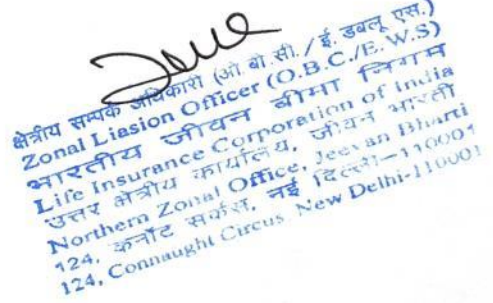 क्षेत्रीय सम्पर्क अधिकारी (ओ.बी.सी./ई.डबलू एस.)
Zonal Liasion Officer (O.B.C./E.W.S)
भारतीय जीवन बीमा निगम
Life Insurance Corporation of India
उत्तर क्षेत्रीय कार्यालय, जीवन भारती
Northern Zonal Office, Jeevan Bharti
124, कनॉट सर्कस, नई दिल्ली-110001
124, Connaught Circus, New Delhi-110001